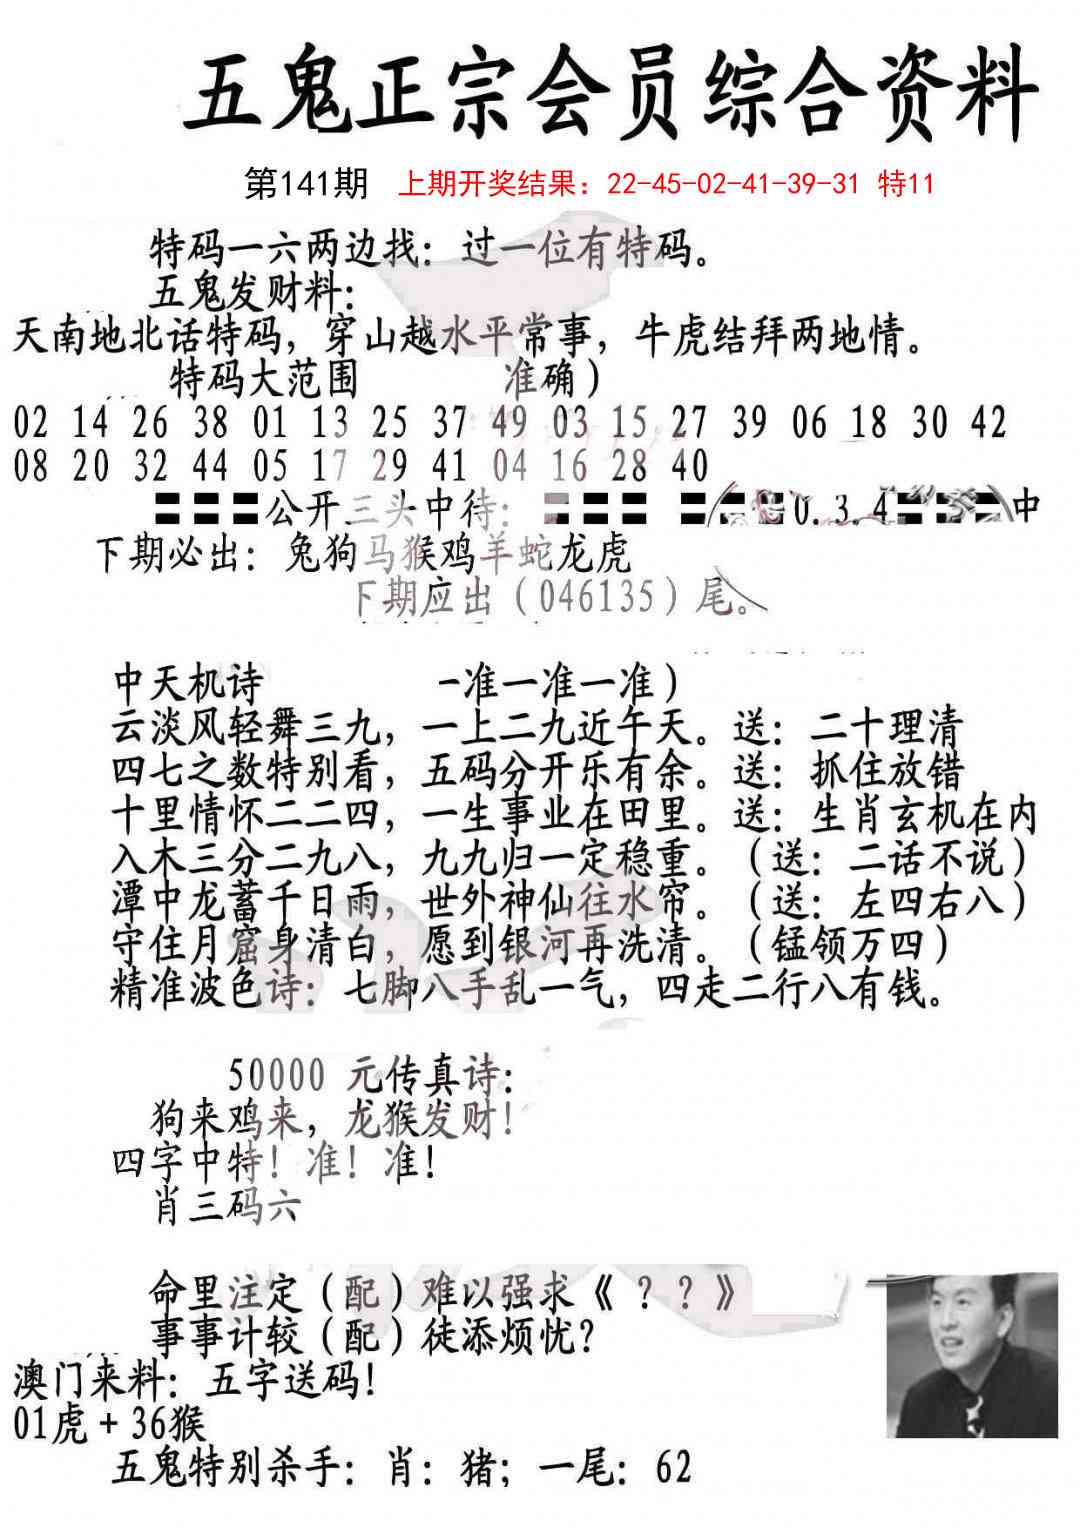 五鬼正宗会员综合资料
第141期 上期开奖结果：22-45-02-41-39-31 特11
特码一六两边找：过一位有特码。
五鬼发财料：
天南地北话特码，穿山越水平常事，牛虎结拜两地情。
特码大范围 准确）
02 14 26 38 01 13 25 37 49 03 15 27 39 06 18 30 42
08 20 32 44 05 17 29 41 04 16 28 40
公开三头中待： 0.3.4 中
下期必出：兔狗马猴鸡羊蛇龙虎
下期应出（046135）尾。
中天机诗 一准一准一准）
云淡风轻舞三九，一上二九近午天。送：二十理清
四七之数特别看，五码分开乐有余。送：抓住放错
十里情怀二二四，一生事业在田里。送：生肖玄机在内
入木三分二九八，九九归一定稳重。（送：二话不说）
潭中龙蓄千日雨，世外神仙往水帘。（送：左四右八）
守住月窟身清白，愿到银河再洗清。（锰领万四）
精准波色诗：七脚八手乱一气，四走二行八有钱。
50000 元传真诗：
狗来鸡来，龙猴发财！
四字中特！准！准！
肖三码六
命里注定（配）难以强求《？？》
事事计较（配）徒添烦忧？
澳门来料：五字送码！
01虎＋36猴
五鬼特别杀手：肖：猪；一尾：62